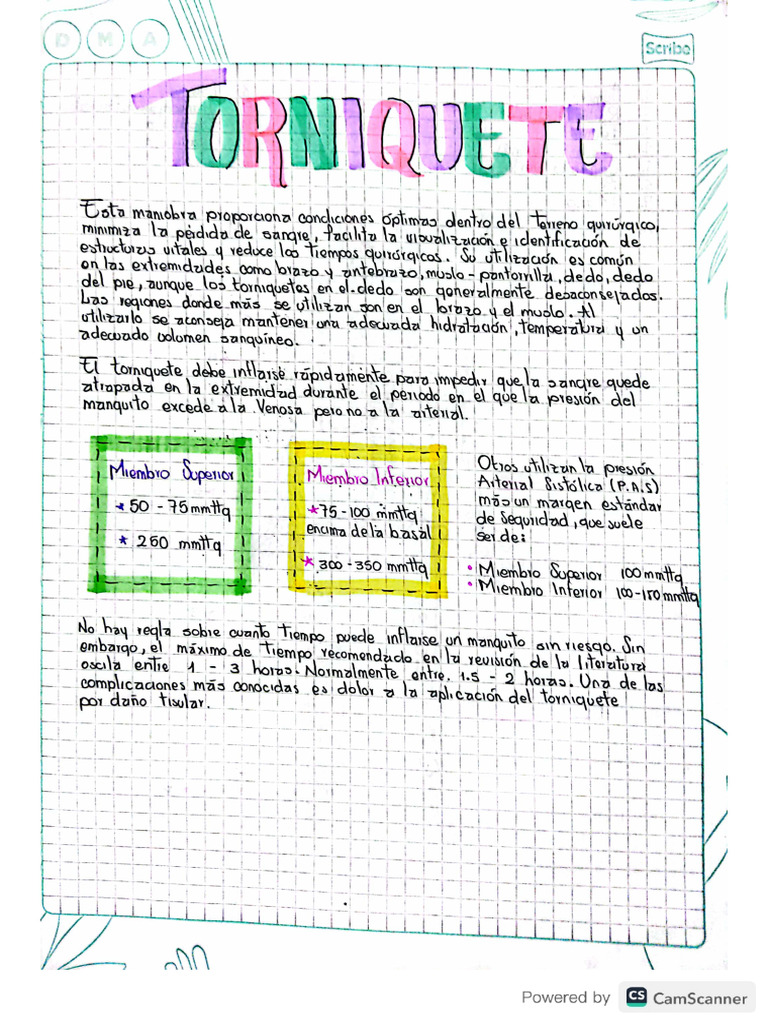 D M A
Scribe
TORNIQUETE
Esta maniobra proporciona condiciones óptimas dentro del Terreno quirúrgico,
minimiza la pérdida de sangre, facilita la visualización e identificación de
estructuras vitales y reduce los Tiempos quirúrgicos. Su utilización es común
en las extremidades como brazo y antebrazo, muslo - pantorrilla, dedo, dedo
del pie, aunque los torniquetes en el dedo son generalmente desaconsejados.
Las regiones donde más se utilizan son en el brazo y el muslo. Al
utilizarlo se aconseja mantener una adecuada hidratación, temperatura y un
adecuado volumen sanguíneo.
El torniquete debe inflarse rápidamente para impedir que la sangre quede
atrapada en la extremidad durante el periodo en el que la presión del
manguito excede a la Venosa pero no a la arterial.
Miembro Superior
* 50 - 75 mmHg
* 250 mmHg
Miembro Inferior
* 75 - 100 mmHg
encima de la basal
* 300 - 350 mmHg
Otros utilizan la presión
Arterial Sistólica (P.A.S)
más un margen estándar
de Seguridad, que suele
ser de:
• Miembro Superior 100 mmHg
• Miembro Inferior 100-150 mmHg
No hay regla sobre cuanto Tiempo puede inflarse un manguito sin riesgo. Sin
embargo, el máximo de Tiempo recomendado en la revisión de la literatura
oscila entre 1 - 3 horas. Normalmente entre. 1.5 - 2 horas. Una de las
complicaciones más conocidas es dolor a la aplicación del torniquete
por daño tisular.
Powered by CS CamScanner